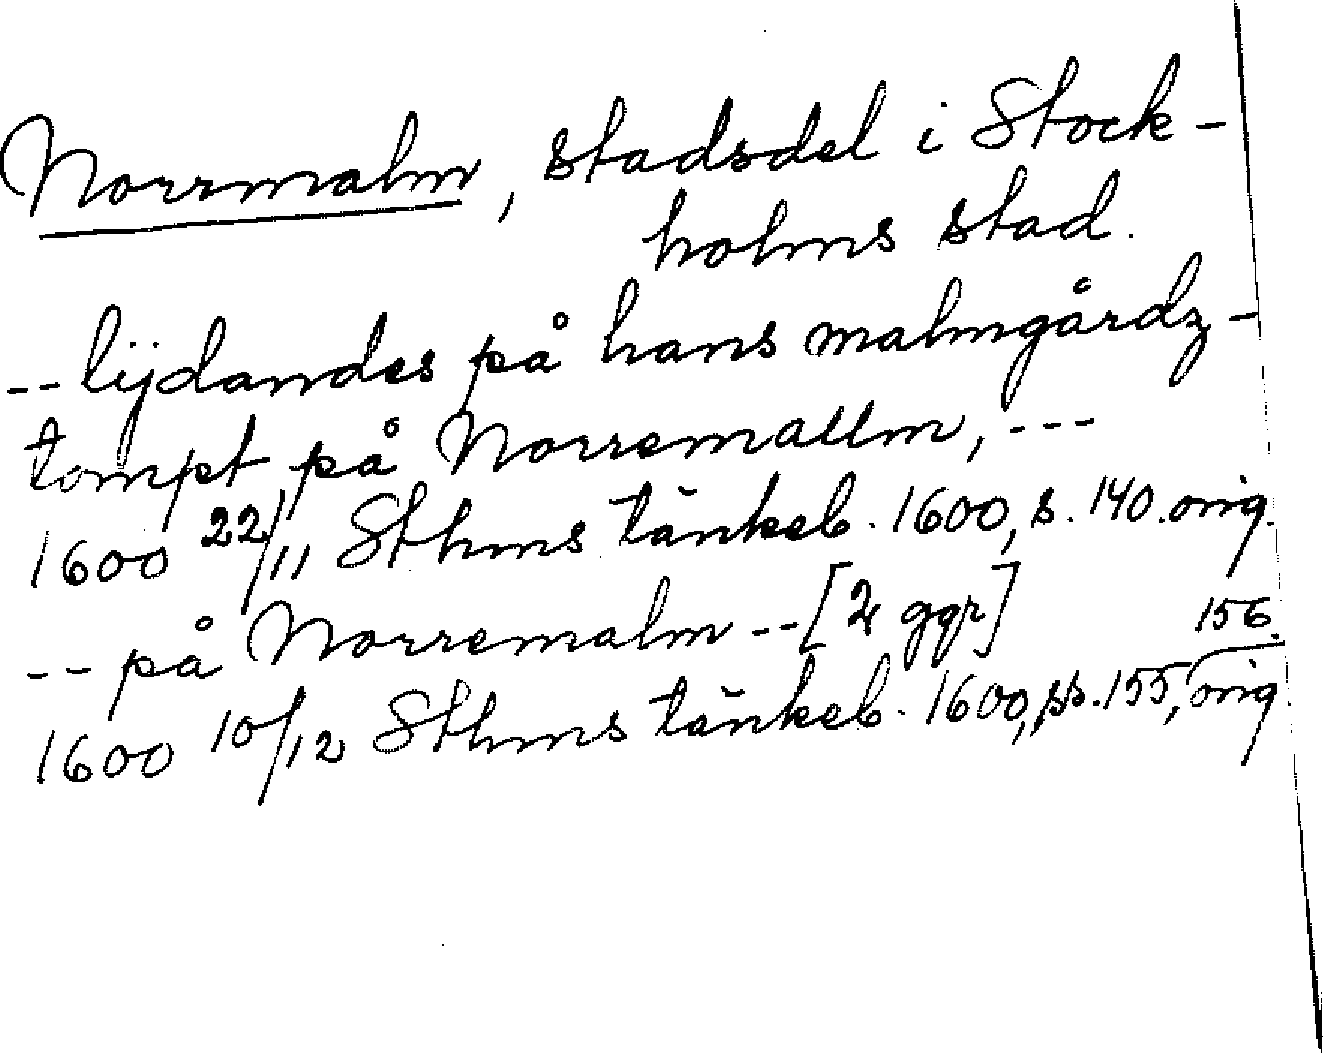 Norrmalm, stadsdel i Stock-
holms stad.
-- lijdandes på hans malmgårdz-
tompt på Norremallm, ---
1600 22/11 Sthms tänkeb. 1600, s. 140. orig.
-- på Norremalm -- [2 ggr]
156.
1600 10/12 Sthms tänkeb. 1600, ss. 155, orig.